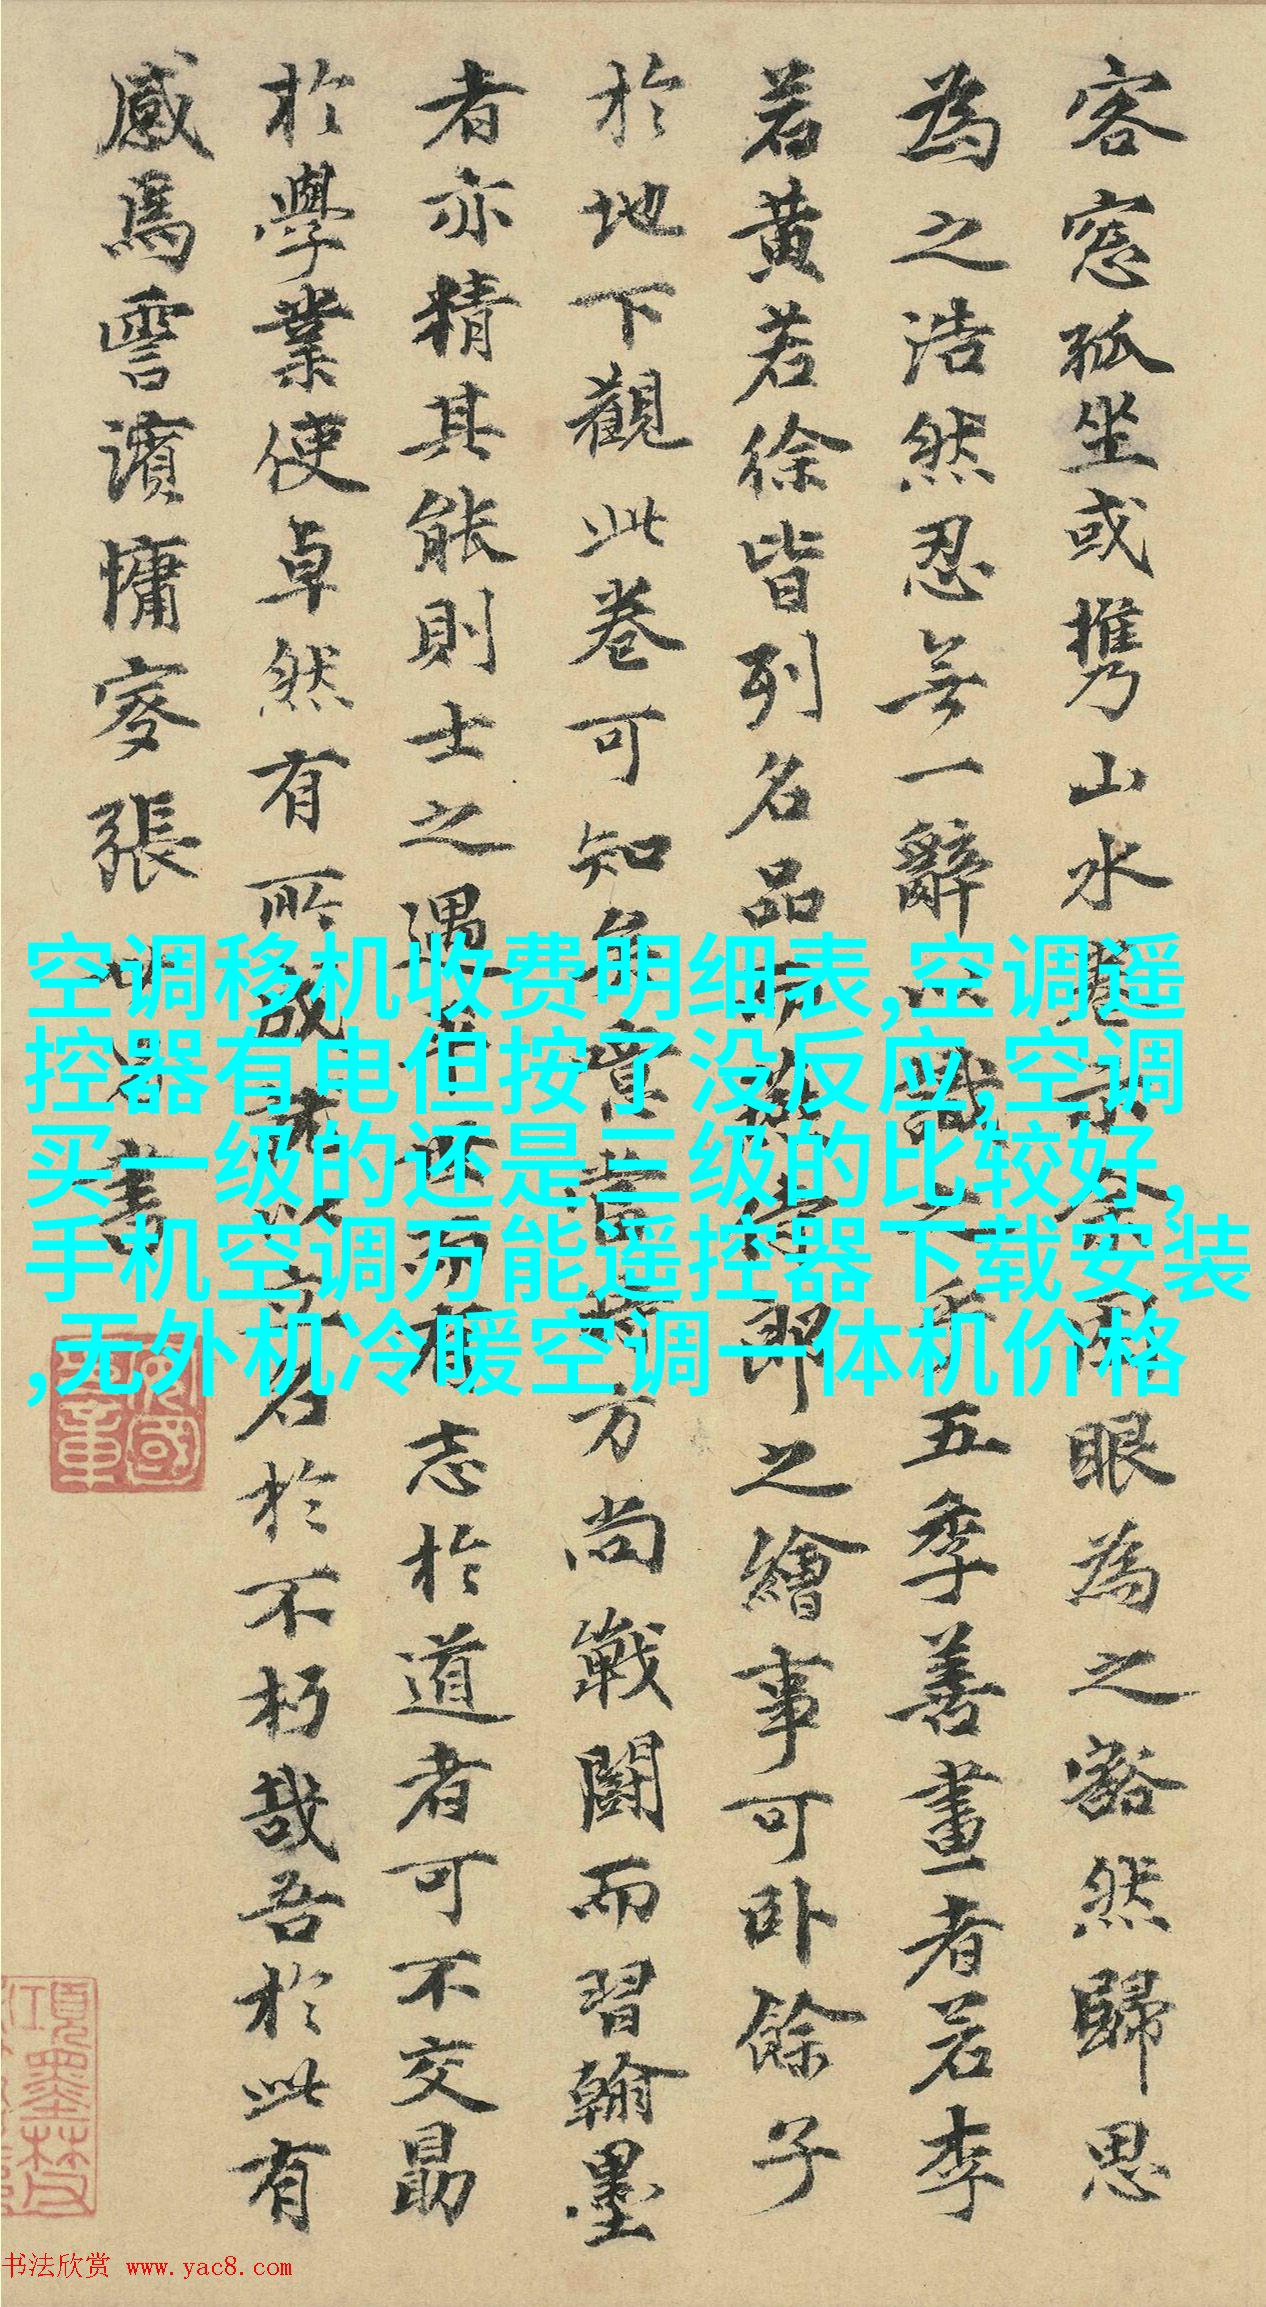 客窓孤坐或携山水卷示余因眼為之豁然歸思
為之浩然忍無一辭以識之乎五季善畫者若李
若黃若徐皆列名品即之繪事可卧餘子
於地下觀此卷可知矣當四方尚戰鬪而習翰墨
者亦精其能則士之遇而有志於道者可不交勗
於學業使卓然有所成就以立名於不朽哉吾於此有
感焉霅濱慵叟張書
空调移机收费明细表,空调遥
控器有电但按了没反应,空调
买一级的还是三级的比较好,
手机空调万能遥控器下载安装
,无外机冷暖空调一体机价格
书法欣赏 www.yac8.com